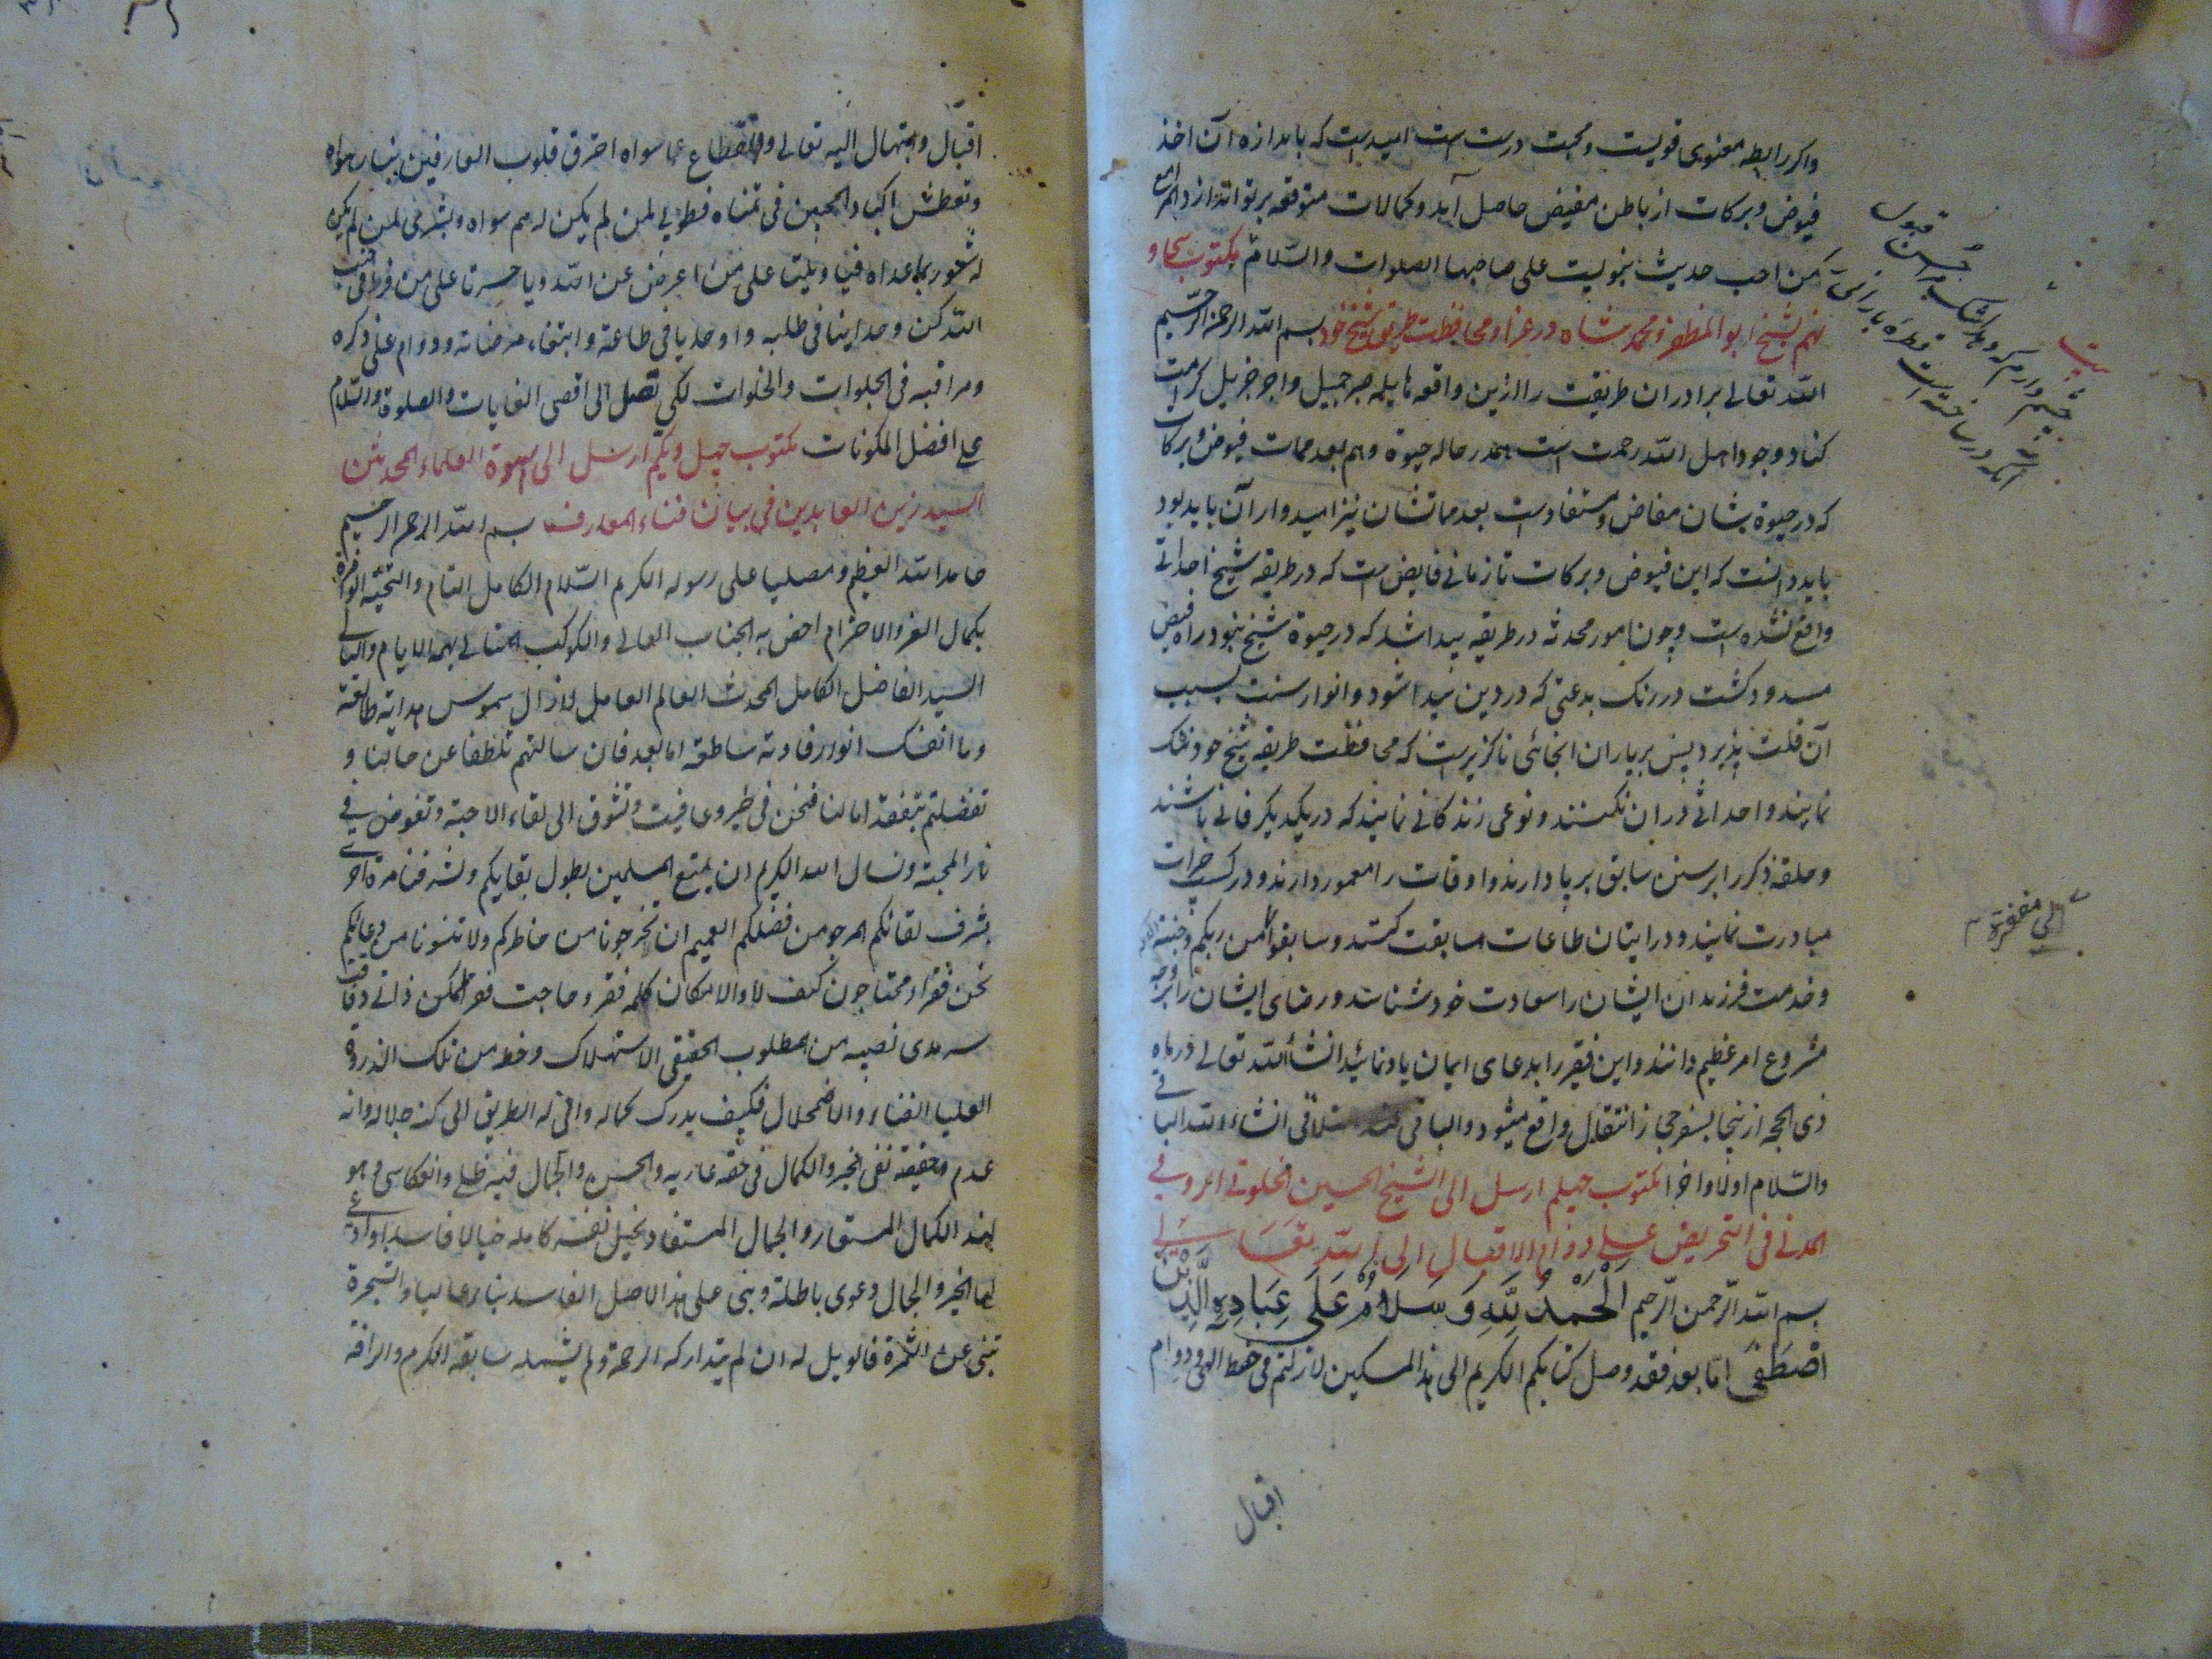 واکر رابطه معنوی قویست و محبت درست است امید است که باندازه آن اخذ
فیوض و برکات از باطن مفیض حاصل آید و کمالات متوقعه پرتو اندازد المرء مع
من احب حدیث نبویست علی صاحبها الصلوات والسلام مکتوب سی و
نهم بشیخ ابو المظفر و محمد شاه در عزا و محافظت طریق شیخ خود بسم الله الرحمن الرحیم
الله تعالی برادران طریقت را ازین واقعه هایله صبر جمیل و اجر جزیل کرامت
کناد وجود اهل الله رحمت است هم در حاله حیوة و هم بعد ممات فیوض و برکات
که در حیوة یشان مفاض و مستفادست بعد مماتشان نیز امیدوار آن باید بود
باید دانست که این فیوض و برکات تا زمانی فایض است که در طریقه شیخ احداثی
واقع نشده است و چون امور محدثه در طریقه پیدا شد که در حیوة شیخ نبود راه فیض
مسدود کشت در رنک بدعتی که در دین پیدا شود و انوار سنت بسبب
آن قلت پذیرد پس بر یاران انجائی ناکزیرست که محافظت طریقه شیخ خود نیک
نمایند و احداثی دران نکنند و نوعی زندکانی نمایند که در یکدیکر فانی باشند
و حلقه ذکر را بر سنن سابق بر پا دارند و اوقات را معمور دارند و در کسب خیرات
مبادرت نمایند و در اتیان طاعات مسابقت کنند و سابقوا من ربکم و جنة
الی مغفرة
و خدمت فرزندان ایشان را سعادت خود شناسند و رضای ایشان را بر وجه
مشروع امر عظیم دانند و این فقیر را بدعای ایمان یاد نمائید انشأ الله تعالی در ماه
ذی الحجه ازینجا بسفر حجاز انتقال واقع میشود والباقی عند التلاقی انشاء الله الباقی
والسلام اولا و اخرا مکتوب چهلم ارسل الی الشیخ الحسین الخلوتی الرومی
المدنی فی التحریض علی دوام الاقبال الی الله تعالی
بسم الله الرحمن الرحیم الحمد لله وسلام علی عباده الذین
اصطفی اما بعد فقد وصل کتابکم الکریم الی هذا المسکین لازلتم فی حفظ الله و دوام
اقبال
بیت
اقبال وابتهال الیه تعالی وانقطاع عما سواه احترق قلوب العارفین بنار هواه
وتعطش اکباد المحبین فی تمناه فطوبی لمن لم یکن لهم سواه وبشری لمن لم یکن
له شعور بما عداه فیا ویلتا علی من اعرض عن الله ویا حسرتا علی من فرط فی جنب
الله کن وحدانیا فی طلبه واوحدیا فی طاعته وابتغاء مرضاته ودوام علی ذکره
ومراقبه فی الجلوات والخلوات لکی تصل الی اقصی الغایات والصلوة والسلام
علی افضل المکونات مکتوب چهل و یکم ارسل الی اسوة العلماء المحدثین
السید زین العابدین فی بیان فناء العارف بسم الله الرحمن الرحیم
حامدا لله العظیم ومصلیا علی رسوله الکریم السلام الکامل التام والتحیة الوافرة
بکمال العز والاحترام اخص به الجناب العالی والکوکب المتالی بهجة الایام واللیالی
السید الفاضل الکامل المحدث العالم العامل لازال شموس هدایته طالعة
وما انفک انوار فادته ساطعة اما بعد فان سالتم تلطفا عن حالنا و
تفضلتم بتفقد امالنا فنحن فی خیر وعافیت وتشوق الی لقاء الاحبة ونغوض فی
نار المحبة ونسال الله الکریم ان یمتع المسلمین بطول بقایکم ونشرفنا مرة اخری
بشرف لقائکم المرجو من فضلکم العمیم ان لا تخرجونا من خاطرکم ولا تنسونا من دعائکم
نحن فقراء محتاجون کیف لا والامکان کله فقر وحاجت فقر الممکن ذاتی وفاقته
سرمدی نصیبه من المطلوب الحقیقی الاستهلاک وحظه من تلک الذروة
العلیا الفناء والاضمحلال فکیف یدرک کماله وانی له الطریق الی کنه جلاله وانه
عدم وحقیقته نفی الخیر والکمال فی حقه عاریه والحسن والجمال فیه ظلی وانعکاسی وهو
بهذا الکمال المستعار والجمال المستفاد تخیل نفسه کامله خیالا فاسدا وادعی
لها الخیر والجمال دعوی باطلة وبنی علی هذا الاصل الفاسد بناء عالیا والشجرة
تنبی عن الثمرة فالویل له ان لم یتدارکه الرحمة ولم یشمله سابقه الکرم والرافة